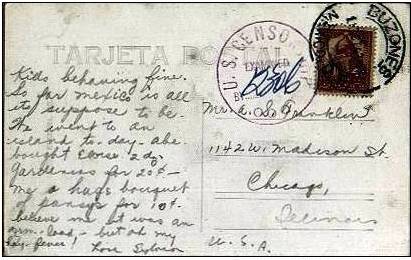 TARJETA POSTAL
U. S. CENSORSHIP
EXAMINED
BY
BUZONES
MEXICO
Kids behaving fine.
So far mexico is all
its suppose to be.
We went to an
island to-day-abe
bought Elouse 2 dz
Gardenias for 20¢ –
me a huge bouquet
of pansys for 10¢.
believe me it was an
arm-load – but oh my
hay-fever!
Love Sylvia
Mr. A. S. Franklin
1142 W. Madison St.
Chicago,
Illinois
U. S. A.